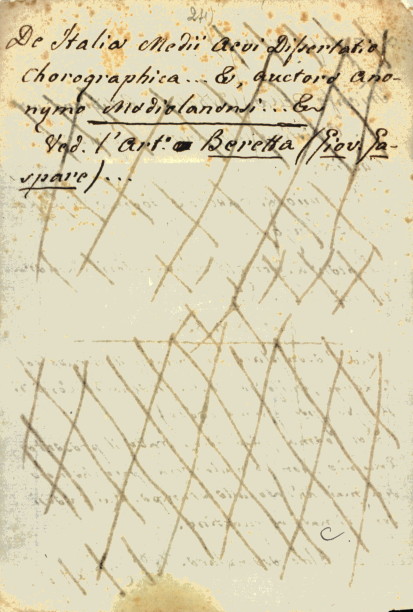 De Italia Medii Aevi Dissertatio
Chorographica... &, auctore Ano-
nymo Mediolanensi... &
Ved. l'Art.o Beretta (Giov. Ga-
spare)...